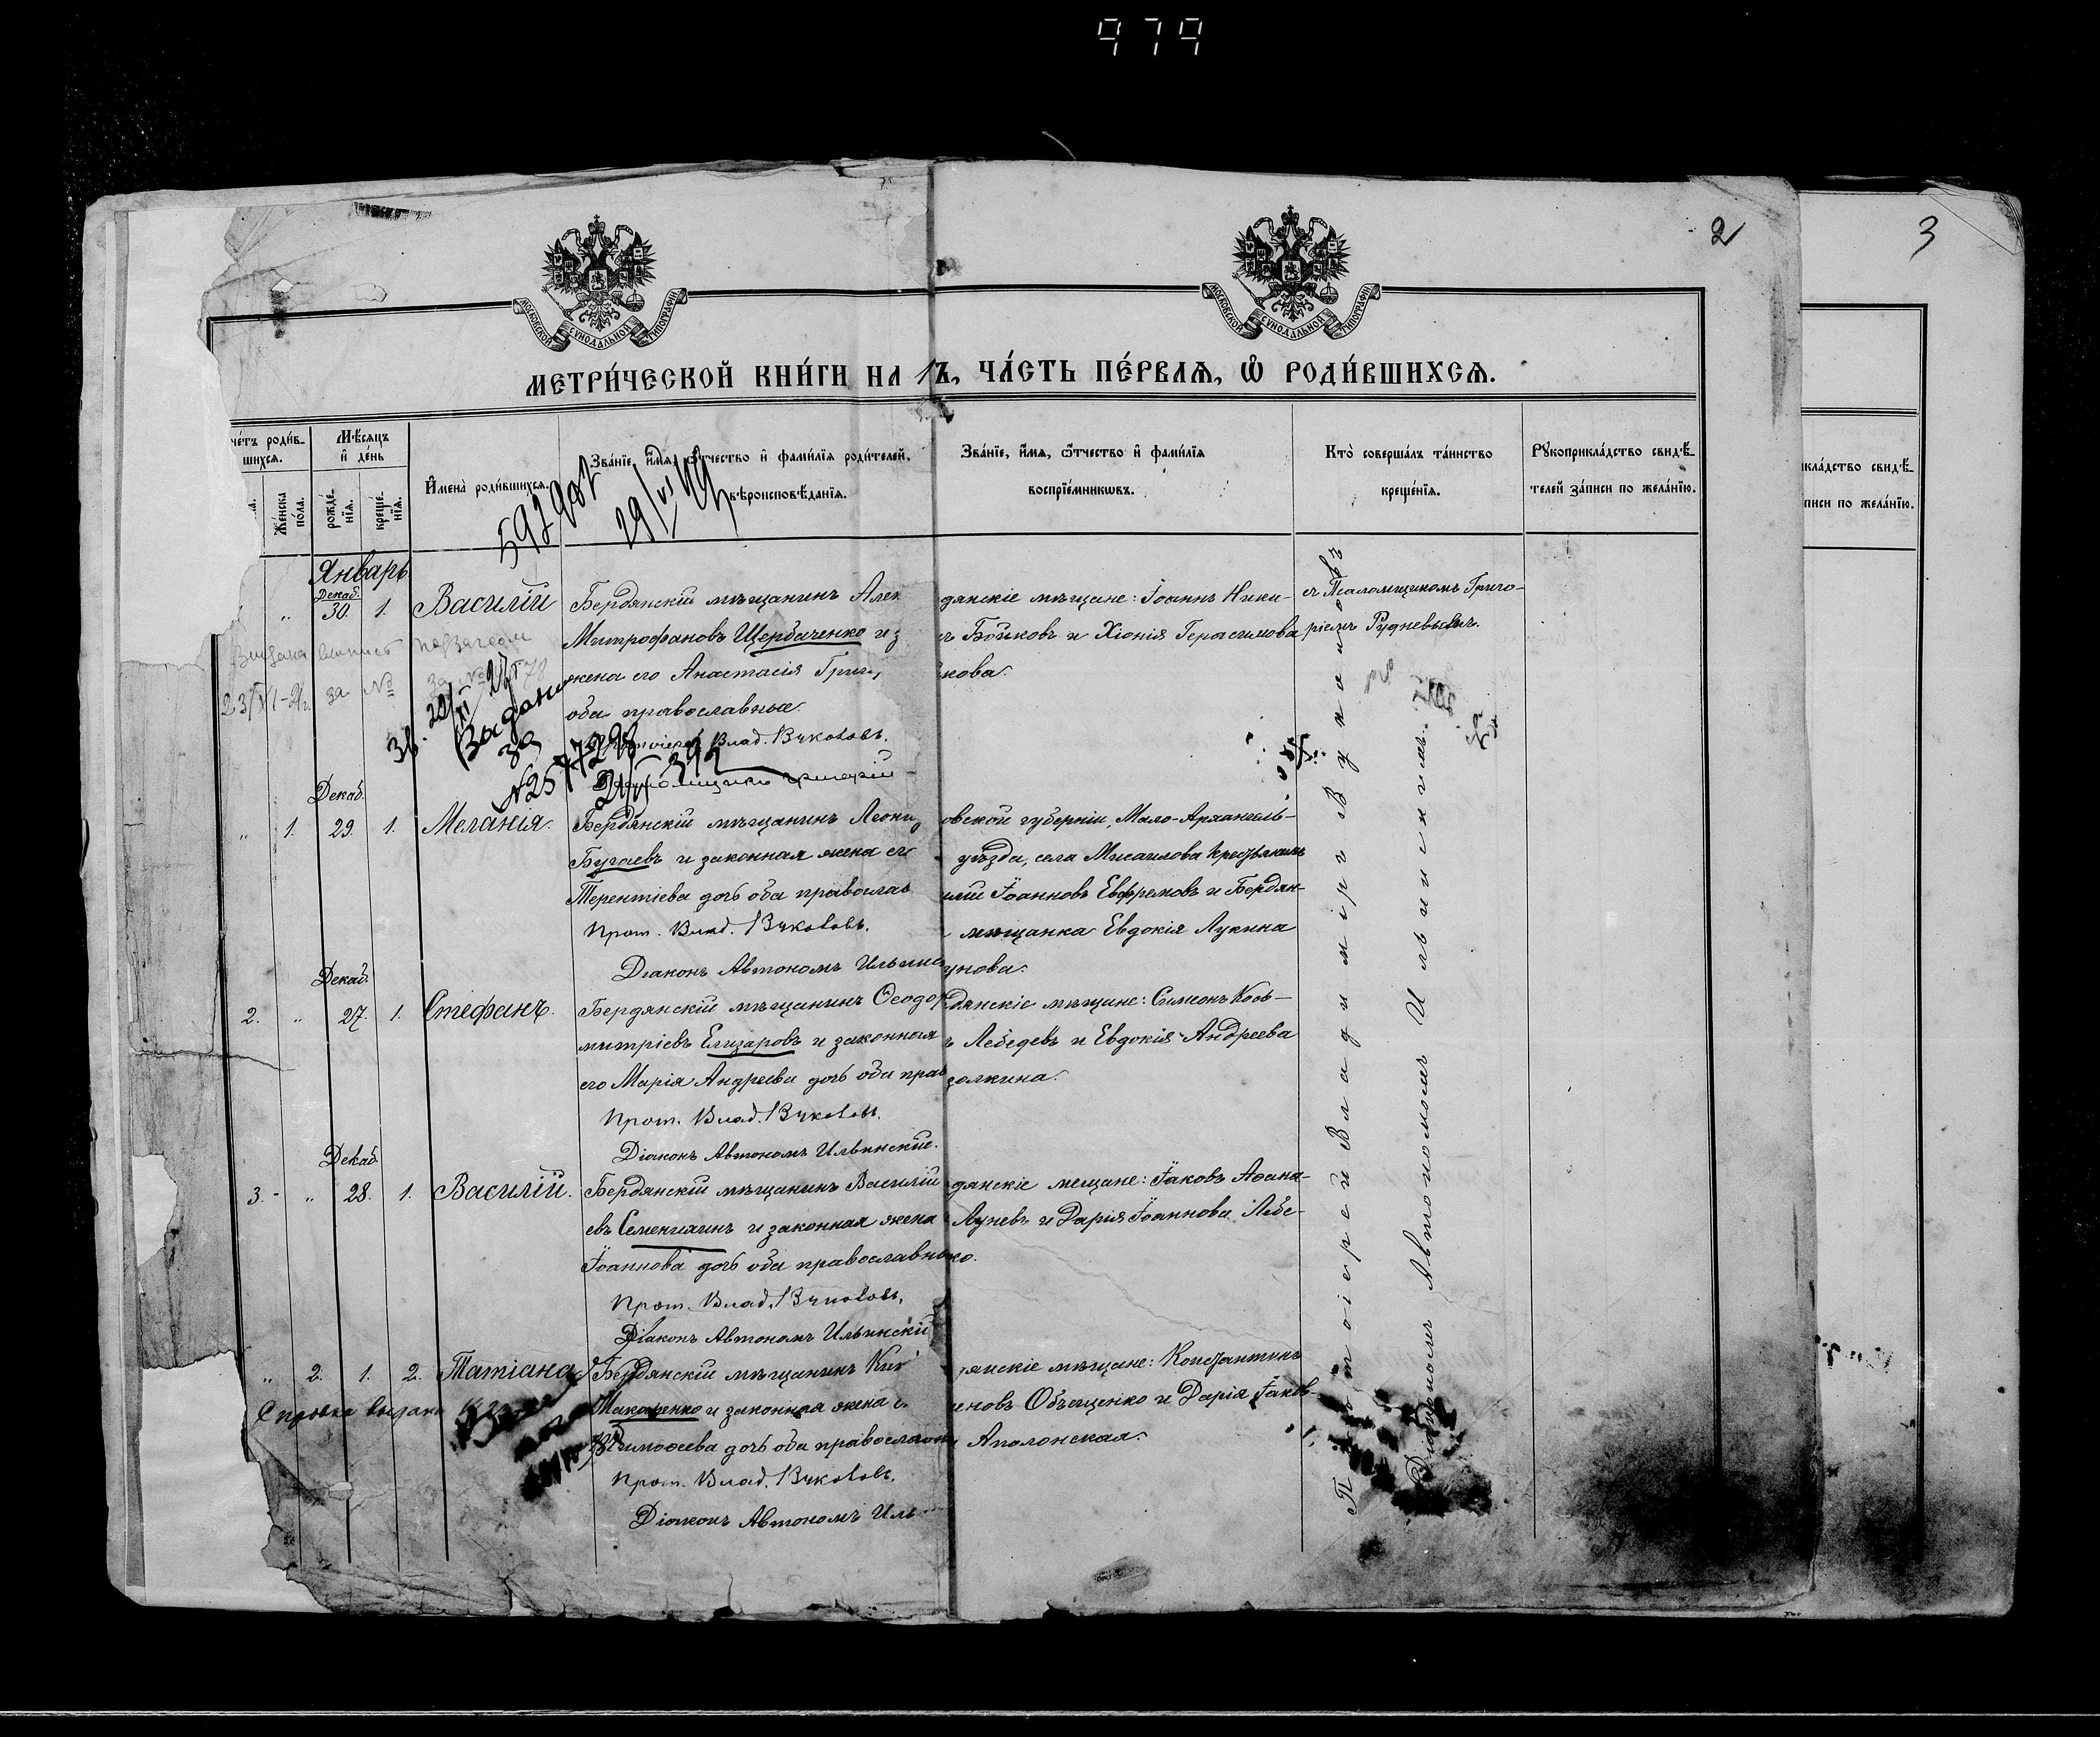 979
2
3
МОСКОВСКОЙ СѴНОДАЛЬНОЙ ТИПОГРАФІИ
МОСКОВСКОЙ СѴНОДАЛЬНОЙ ТИПОГРАФІИ
МЕТРИ́ЧЕСКОЙ КНИ́ГИ НА 1 Ъ, ЧА́СТЬ ПЕ́РВАѦ, Ѿ РОДИ́ВШИХСѦ.
че́тъ роди́в-
шихсѧ.
Же́нска по́ла.
Мѣ́сѧцъ и де́нь
рожде́-нїѧ.
креще́-нїѧ.
Имена̀ роди́вшихсѧ.
Зва́нїе, и́мѧ, ѻ́тчество и фами́лїѧ роди́телей,
вѣроисповѣ́данїѧ.
Зва́нїе, и́мѧ, ѻ́тчество и фами́лїѧ
воспрїе́мникѡвъ.
Кто̀ соверша́лъ та́инство
креще́нїѧ.
Рꙋкоприкла́дство свидѣ́-
телей за́писи по жела́нїю.
икла́дство свидѣ́-
писи по жела́нїю.
Январь
Декаб.
„ 30. 1. Василій
Бердянскій мѣщанинъ Алек
Митрофановъ Щербаченко и з
жена его Анастасія Григ
оба православные.
Влад. Вучковъ.
дянскіе мѣщане: Іоаннъ Ники-
ъ Бойковъ и Хіонія Герасимова
нова.
съ Псаломщикомъ Григо-
ріемъ Рудневымъ.
за №
Выдана
за
Декаб.
„ 1. 29. 1. Меланія.
Бердянскій мѣщанинъ Леони
Бугаевъ и законная жена ег
Терентіева дочь оба православ
Прот. Влад. Вучковъ.
Діаконъ Автономъ Ильинс
овской губерніи, Мало-Архангель-
уѣзда, села Мисаилова крестьянинъ
илій Іоанновъ Евфремовъ и Бердян-
мѣщанка Евдокія Лукина
унова.
Декаб.
2. „ 27. 1. Стефанъ.
Бердянскій мѣщанинъ Ѳеодор
митріевъ Елизаровъ и законная
его Марія Андреева дочь оба прав
Прот. Влад. Вучковъ.
Діаконъ Автономъ Ильинскій.
дянскіе мѣщане: Симеонъ Козь-
ъ Лебедевъ и Евдокія Андреева
золкина.
Декаб.
3. „ 28. 1. Василій.
Бердянскій мѣщанинъ Василій
евъ Семенихинъ и законная жена
Іоаннова дочь оба православны
Прот. Влад. Вучковъ.
Діаконъ Автономъ Ильинскій
дянскіе мещане: Іаковъ Аѳана-
Луневъ и Дарія Іоаннова Лебе-
ко.
„ 2. 1. 2. Татіана
Бердянскій мѣщанинъ Ки
Макаренко и законная жена е
Тимоѳеева дочь оба православны
Прот. Влад. Вучковъ.
Діаконъ Автономъ Иль
янскіе мѣщане: Константинъ
еновъ Обещенко и Дарія Іаков-
Аполонская.
Справка выдана
Протоіерей Владиміръ Вучковъ
Діакономъ Автономомъ Ильинскимъ.